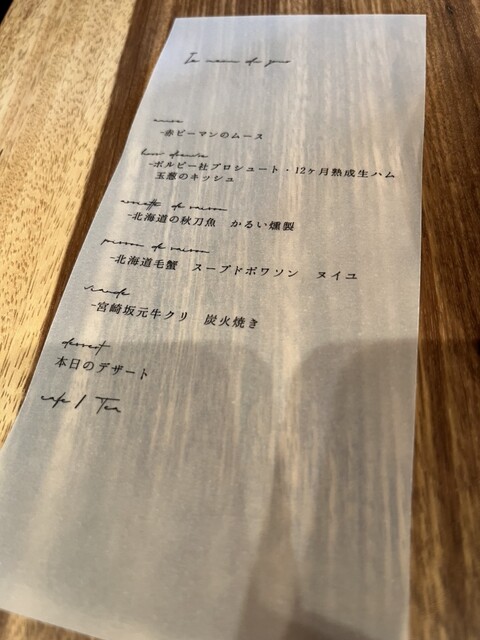 Le menu du jour
amuse
-赤ピーマンのムース
hors d'œuvre
-ボルピー社プロシュート・12ヶ月熟成生ハム
玉葱のキッシュ
assiette de saison
-北海道の秋刀魚 かるい燻製
poisson de saison
-北海道毛蟹 スープドポワソン ヌイユ
viande
-宮崎坂元牛クリ 炭火焼き
dessert
本日のデザート
cafe / Tea